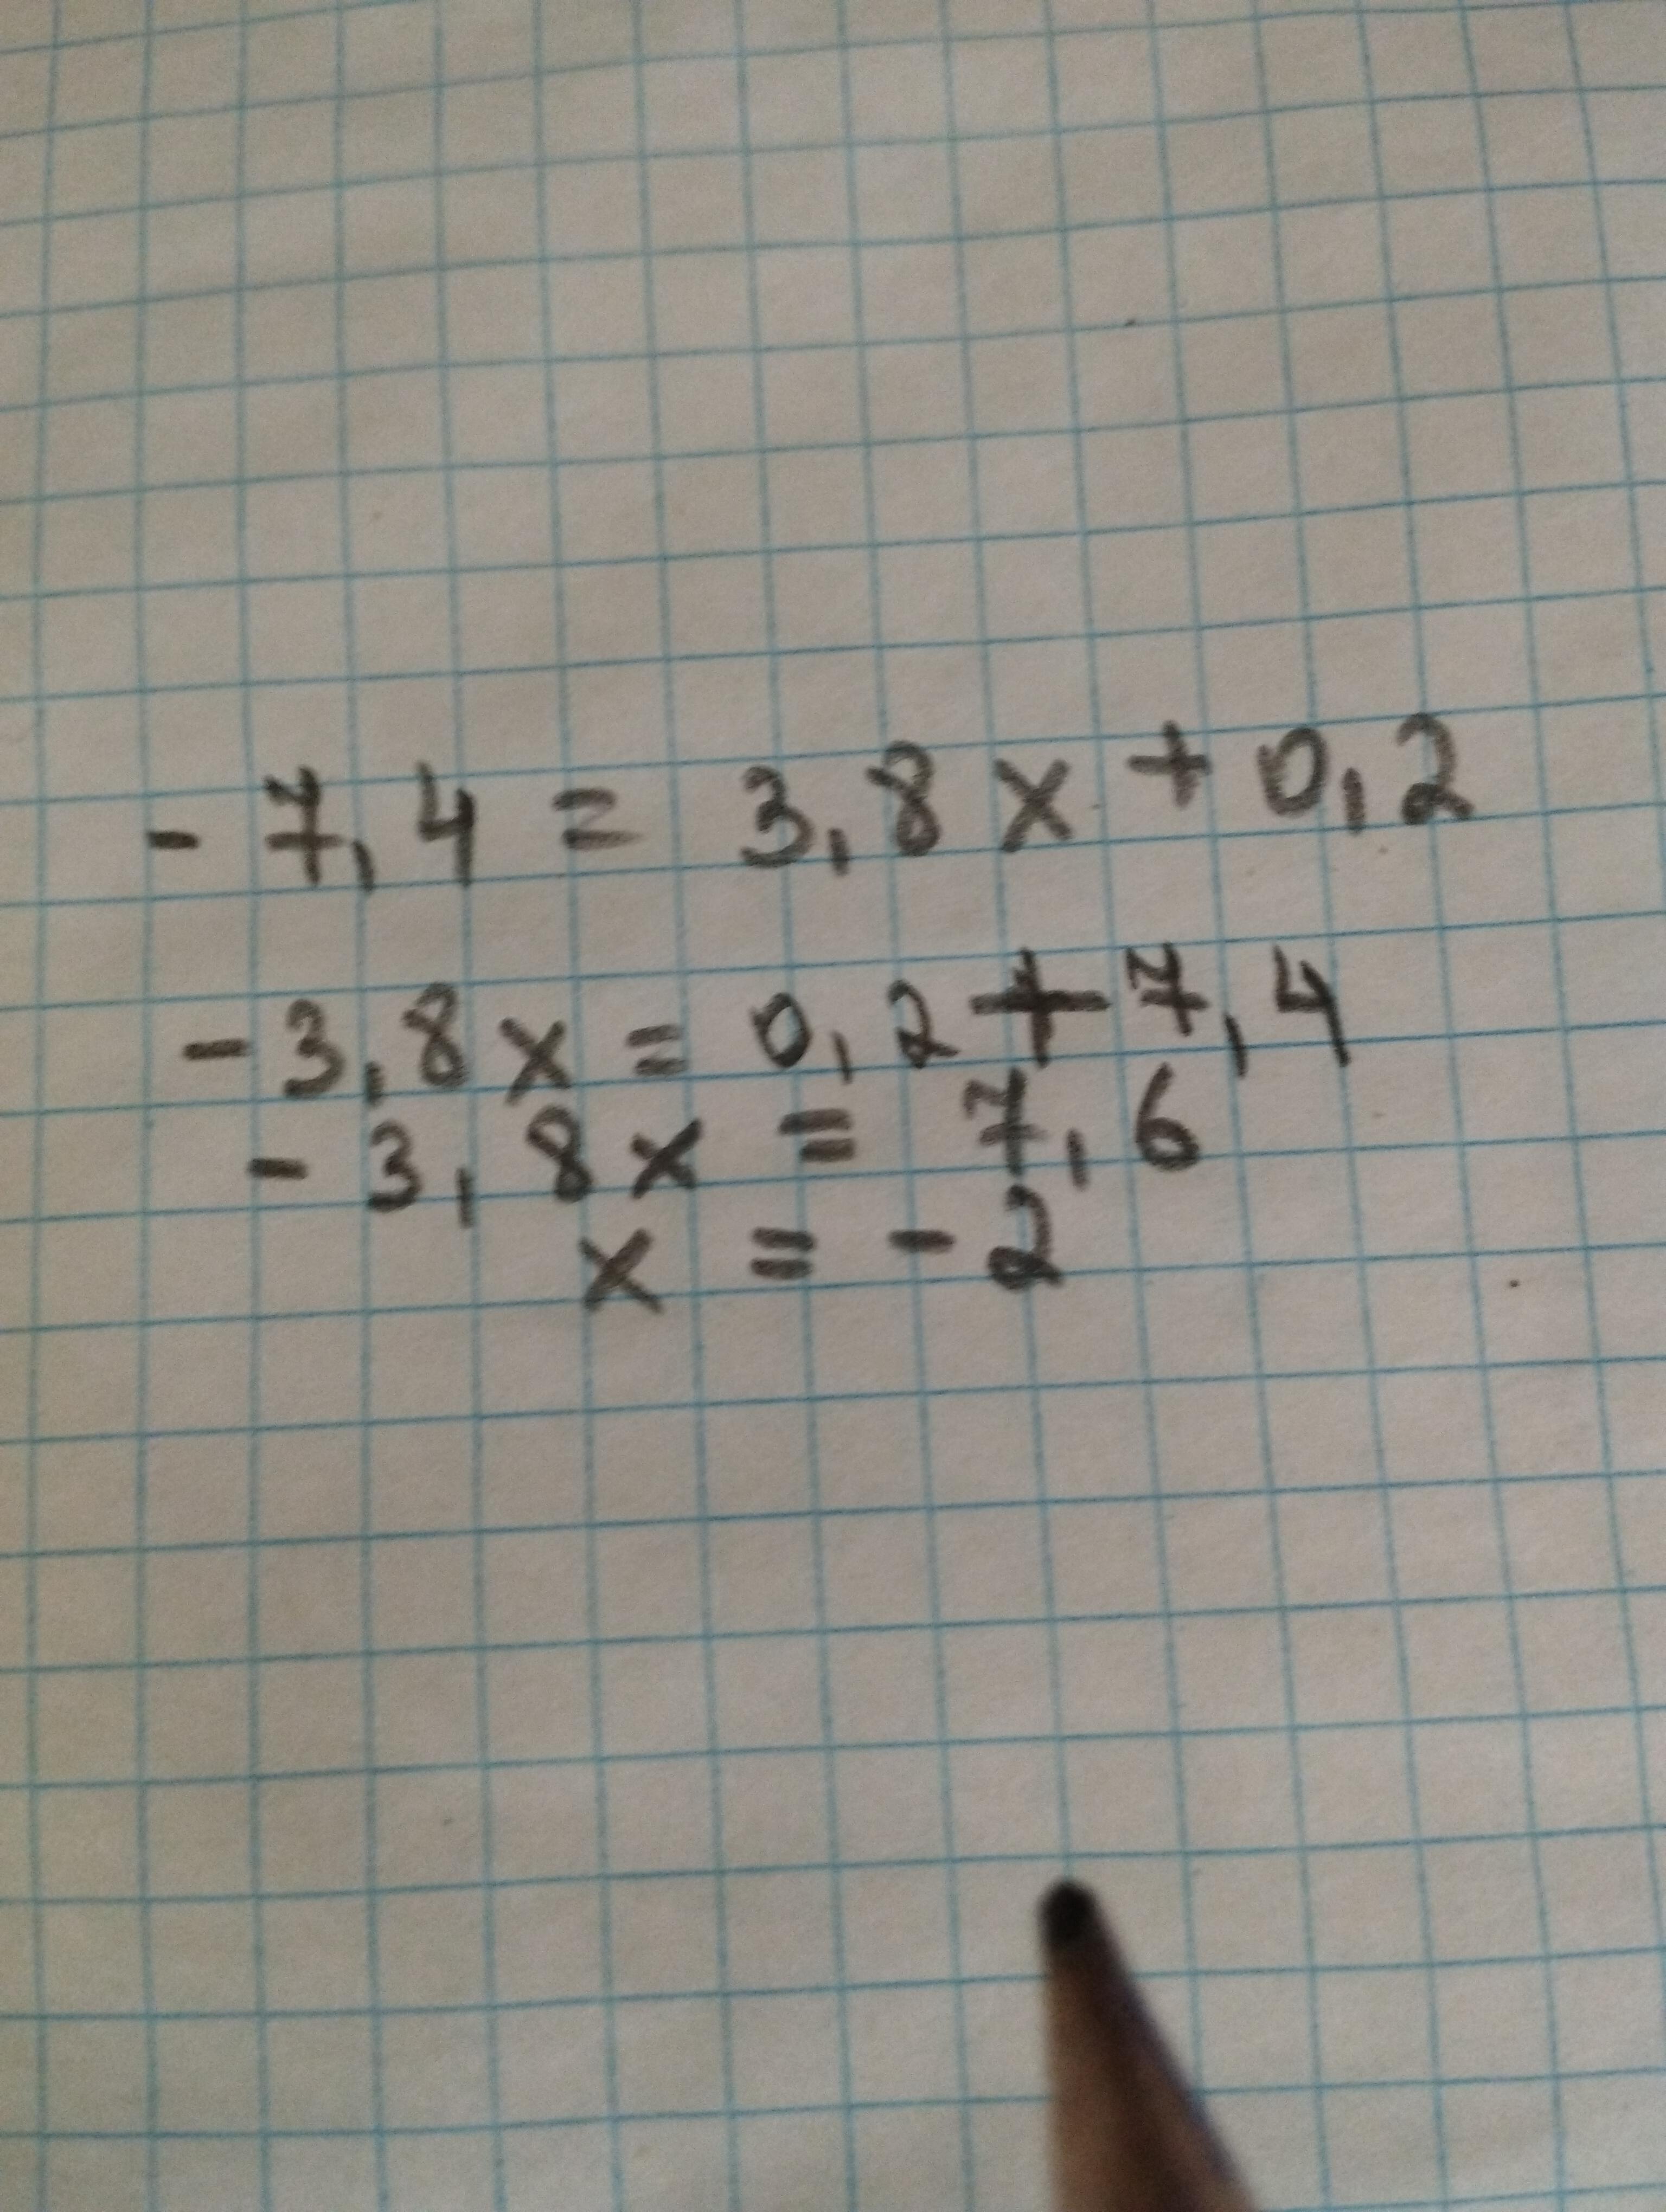 - 7,4 = 3,8x + 0,2
- 3,8x = 0,2 + 7,4
- 3,8x = 7,6
x = - 2